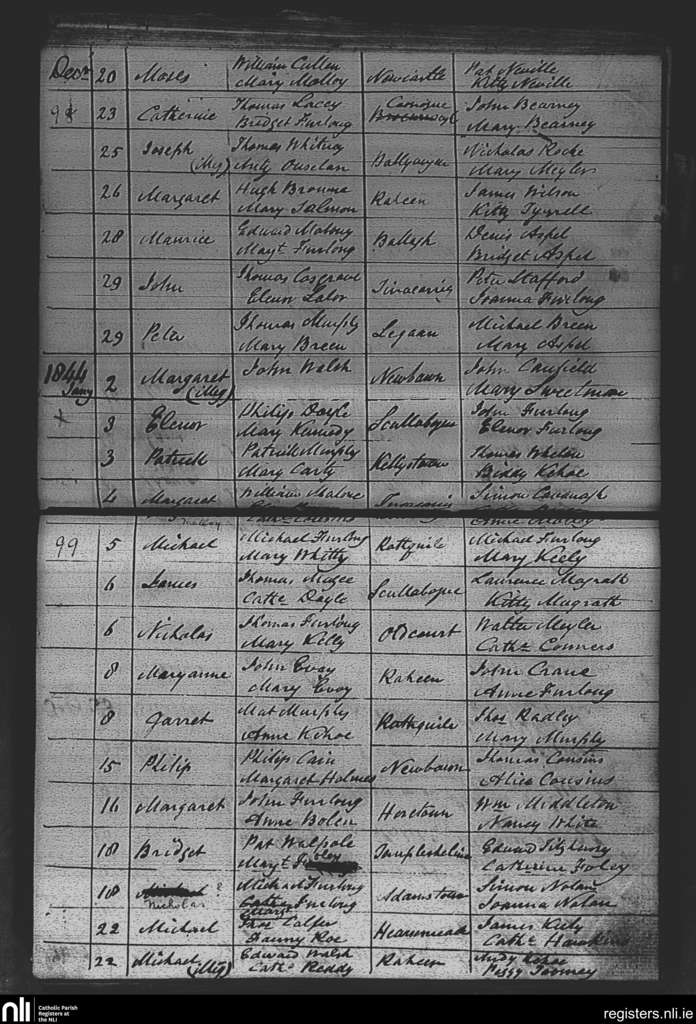 Decr 20 Moses William Cullen Newcastle Pat Neville
Mary Molloy Kitty Neville
98 23 Catherine Thomas Lacey Carrigue John Bearney
Bridget Furlong Mary Bearney
25 Joseph Thomas Whitney Nicholas Roche
(illeg) Mary Meyler
26 Margaret Hugh Browne Raheen James Wilson
Mary Salmon Kitty Tyrrell
28 Maurice Edward Malony Ballagh Denis Aspel
Mayt Furlong Bridget Aspel
29 John Thomas Cosgrave Peter Stafford
Elenor Lalor Joanna Furlong
29 Peter Thomas Murphy Legaan Michael Breen
Mary Breen Mary Aspel
1844 Jany 2 Margaret John Walsh Newbawn John Caufield
(illeg) Mary Sweetman
+ 3 Elenor Philip Doyle Scullabogue John Furlong
Mary Kennedy Elenor Furlong
3 Patrick Patrick Murphy Kellystown Thomas Whelan
Mary Carty Biddy Kehoe
4 Margaret William Malone Simon Cavanagh
Cathe Cousins
99 5 Michael Michael Furlong Rathguile Michael Furlong
Mary Whitty Mary Kiely
6 James Thomas Magee Scullabogue Laurence Magrath
Cathe Doyle Kitty Magrath
6 Nicholas Thomas Furlong Oldcourt Walter Meyler
Mary Kelly Cathe Conners
8 Maryanne John Evoy Raheen John Crane
Mary Evoy Anne Furlong
8 Garret Mat Murphy Rathguile Thos Radley
Anne Kehoe Mary Murphy
15 Philip Philip Cain Newbawn Thomas Cousins
Margaret Holmes Alice Cousins
16 Margaret John Furlong Horetown Wm Middleton
Anne Bolen Nancy White
18 Bridget Pat Walpole Templeshelin Edward Fitzhenry
Mayt Foley Catherine Foley
18 Michael Furlong Adamstown Simon Nolan
Nicholas Furlong Joanna Nolan
Margt
22 Michael Thos Calfer James Kiely
Fanny Roe Cathe Hawkins
22 Michael Edward Walsh Raheen Andy Kehoe
(illeg) Cathe Reddy Peggy Toomey
nli Catholic Parish
Registers at
the NLI
registers.nli.ie